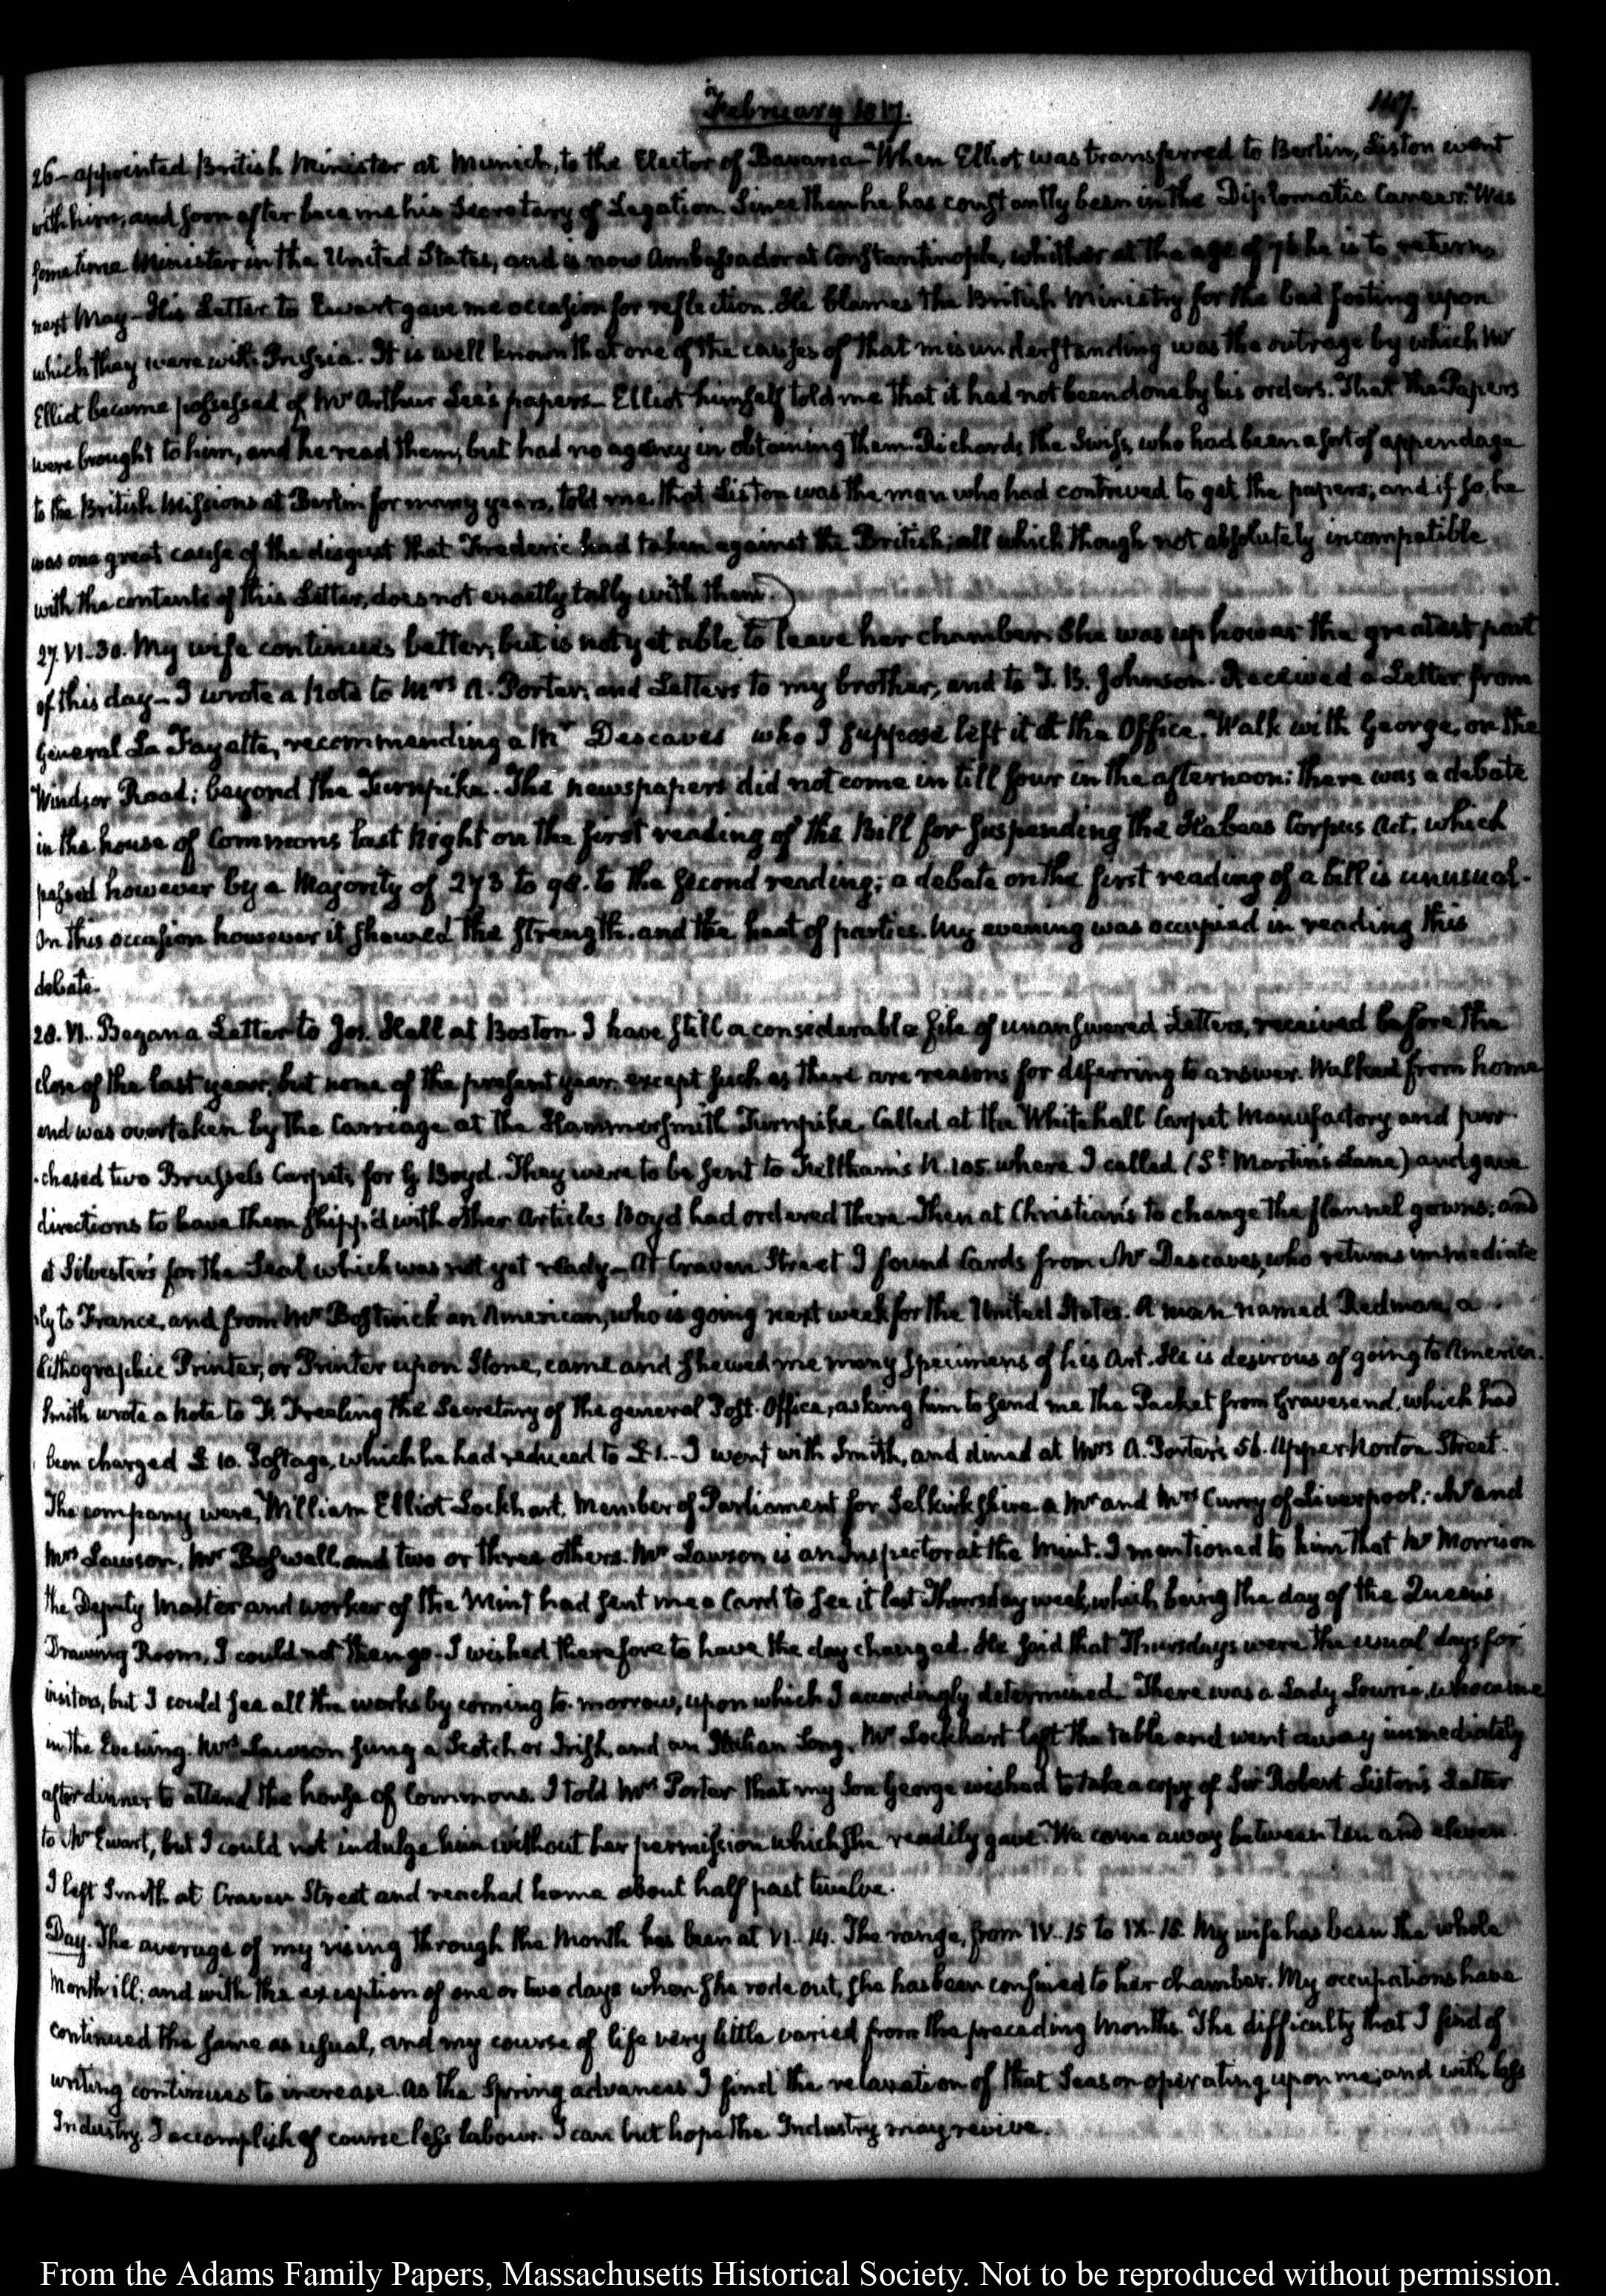 February 1817.
147.
26 – appointed British Minister at Munich, to the Elector of Bavaria – When Elliot was transferred to Berlin, Liston went
with him, and soon after became his Secretary of Legation. Since then he has constantly been in the Diplomatic Career. Was
sometime Minister in the United States, and is now Ambassador at Constantinople, whither at the age of 76 he is to return,
next May – His Letter to Ewart gave me occasion for reflection. He blames the British Ministry for the bad footing upon
which they were with Prussia. It is well known that one of the causes of that misunderstanding was the outrage by which Mr
Elliot became possessed of Mr Arthur Lee's papers – Elliot himself told me that it had not been done by his orders. That the Papers
were brought to him, and he read them, but had no agency in obtaining them. Richards, the Swiss, who had been a sort of appendage
to the British Missions at Berlin for many years, told me that Liston was the man who had contrived to get the papers; and if so, he
was one great cause of the disgust that Frederic had taken against the British; all which though not absolutely incompatible
with the contents of this Letter, does not exactly tally with them.
27. VI–30. My wife continues better, but is not yet able to leave her chamber. She was up the greatest part
of this day – I wrote a Note to Mrs A. Porter, and Letters to my brother, and to T. B. Johnson. Received a Letter from
General La Fayette, recommending a Mr Descaves who I suppose left it at the Office. Walk with George, on the
Windsor Road; beyond the Turnpike. The newspapers did not come in till four in the afternoon: there was a debate
in the house of Commons last Night on the first reading of the Bill for suspending the Habeas Corpus Act, which
passed however by a Majority of 273 to 98. to the second reading; a debate on the first reading of a bill is unusual.
On this occasion however it shewed the strength and the heat of parties. My evening was occupied in reading this
debate.
28. VI. Began a Letter to Jos. Hall at Boston. I have still a considerable file of unanswered Letters, received before the
close of the last year, but none of the present year except such as there are reasons for deferring to answer. Walked from home
and was overtaken by the Carriage at the Hammersmith Turnpike. Called at the Whitehall Carpet Manufactory and pur-
-chased two Brussels Carpets for G. Boyd. They were to be sent to Fulltham's N. 105 where I called (St. Martin's Lane) and gave
directions to have them shipp'd with other Articles Boyd had ordered there. Then at Christian's to change the flannel gowns; and
at Silvester's for the Seal which was not yet ready – At Craven Street I found Cards from Mr Descaves, who returns immediate
-ly to France, and from Mr Bostwick an American, who is going next week for the United States. A man named Redman, a
Lithographic Printer, or Printer upon Stone, came and shewed me many specimens of his Art. He is desirous of going to America.
Smith wrote a note to F. Freeling the Secretary of the general Post-Office, asking him to send me the Packet from Gravesend, which had
been charged £10. Postage, which he had reduced to £1. – I went with Smith, and dined at Mrs A. Porter's 56. Upper Norton Street.
The company were, William Elliot Lockhart, Member of Parliament for Selkirkshire. a Mr and Mrs Curry of Liverpool; Mr and
Mrs Lawson, Mr Boswall and two or three others. Mr Lawson is an Inspector at the Mint. I mentioned to him that Mr Morrison
the Deputy Master and worker of the Mint had sent me a Card to see it last Thursday week, which being the day of the Queen's
Drawing Room, I could not then go – I wished therefore to have the day changed. He said that Thursdays were the usual days for
visitors, but I could see all the works by coming to-morrow, upon which I accordingly determined. There was a Lady Lowrie, who came
in the Evening. Mrs Lawson sung a Scotch or Irish, and an Italian Song. Mr Lockhart left the table and went away immediately
after dinner to attend the house of Commons. I told Mrs Porter that my Son George wished to take a copy of Sir Robert Liston's Letter
to Mr Ewart, but I could not indulge him without her permission which she readily gave. We came away between ten and eleven.
I left Smith at Craven Street and reached home about half past twelve.
Day. The average of my rising through the Month has been at VI–14. The range, from IV–15 to IX–15. My wife has been the whole
Month ill; and with the exception of one or two days when she rode out, she has been confined to her chamber. My occupations have
continued the same as usual, and my course of life very little varied from the preceding Months. The difficulty that I find of
writing continues to increase. As the Spring advances I find the relaxation of that Season operating upon me, and with less
Industry. I accomplish of course less labour. I can but hope the Industry may revive.
From the Adams Family Papers, Massachusetts Historical Society. Not to be reproduced without permission.